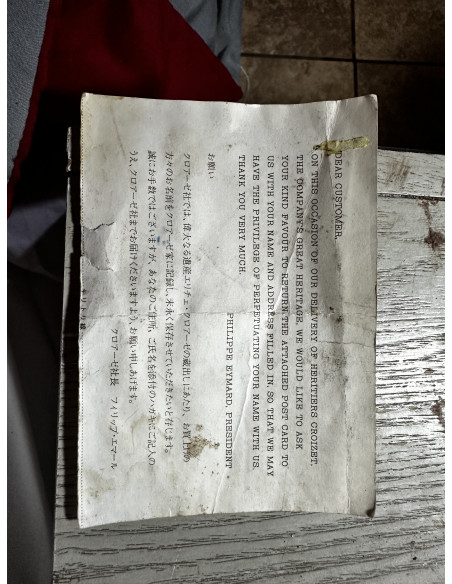 DEAR CUSTOMER,
ON THIS OCCASION OF OUR DELIVERY OF HERITIERS CROIZET,
THE COMPANY'S GREAT HERITAGE, WE WOULD LIKE TO ASK
YOUR KIND FAVOUR TO RETURN THE ATTACHED POST CARD TO
US WITH YOUR NAME AND ADDRESS FILLED IN, SO THAT WE MAY
HAVE THE PRIVILEGE OF PERPETUATING YOUR NAME WITH US.
THANK YOU VERY MUCH.
PHILIPPE EYMARD, PRESIDENT
お願い
クロアーゼ社では、偉大なる遺産エリチェ・クロアーゼの蔵出しにあたり、お買上げの
方々のお名前をクロアーゼ家に記録し、末永く保存させていただきたいと存じます。
誠にお手数ではございますが、あなたのご住所、ご氏名を添付のハガキにご記入の
うえ、クロアーゼ社までお届けくださいますよう、お願い申しあげます。
クロアーゼ社長 フィリップ・エマール
キリトリ線